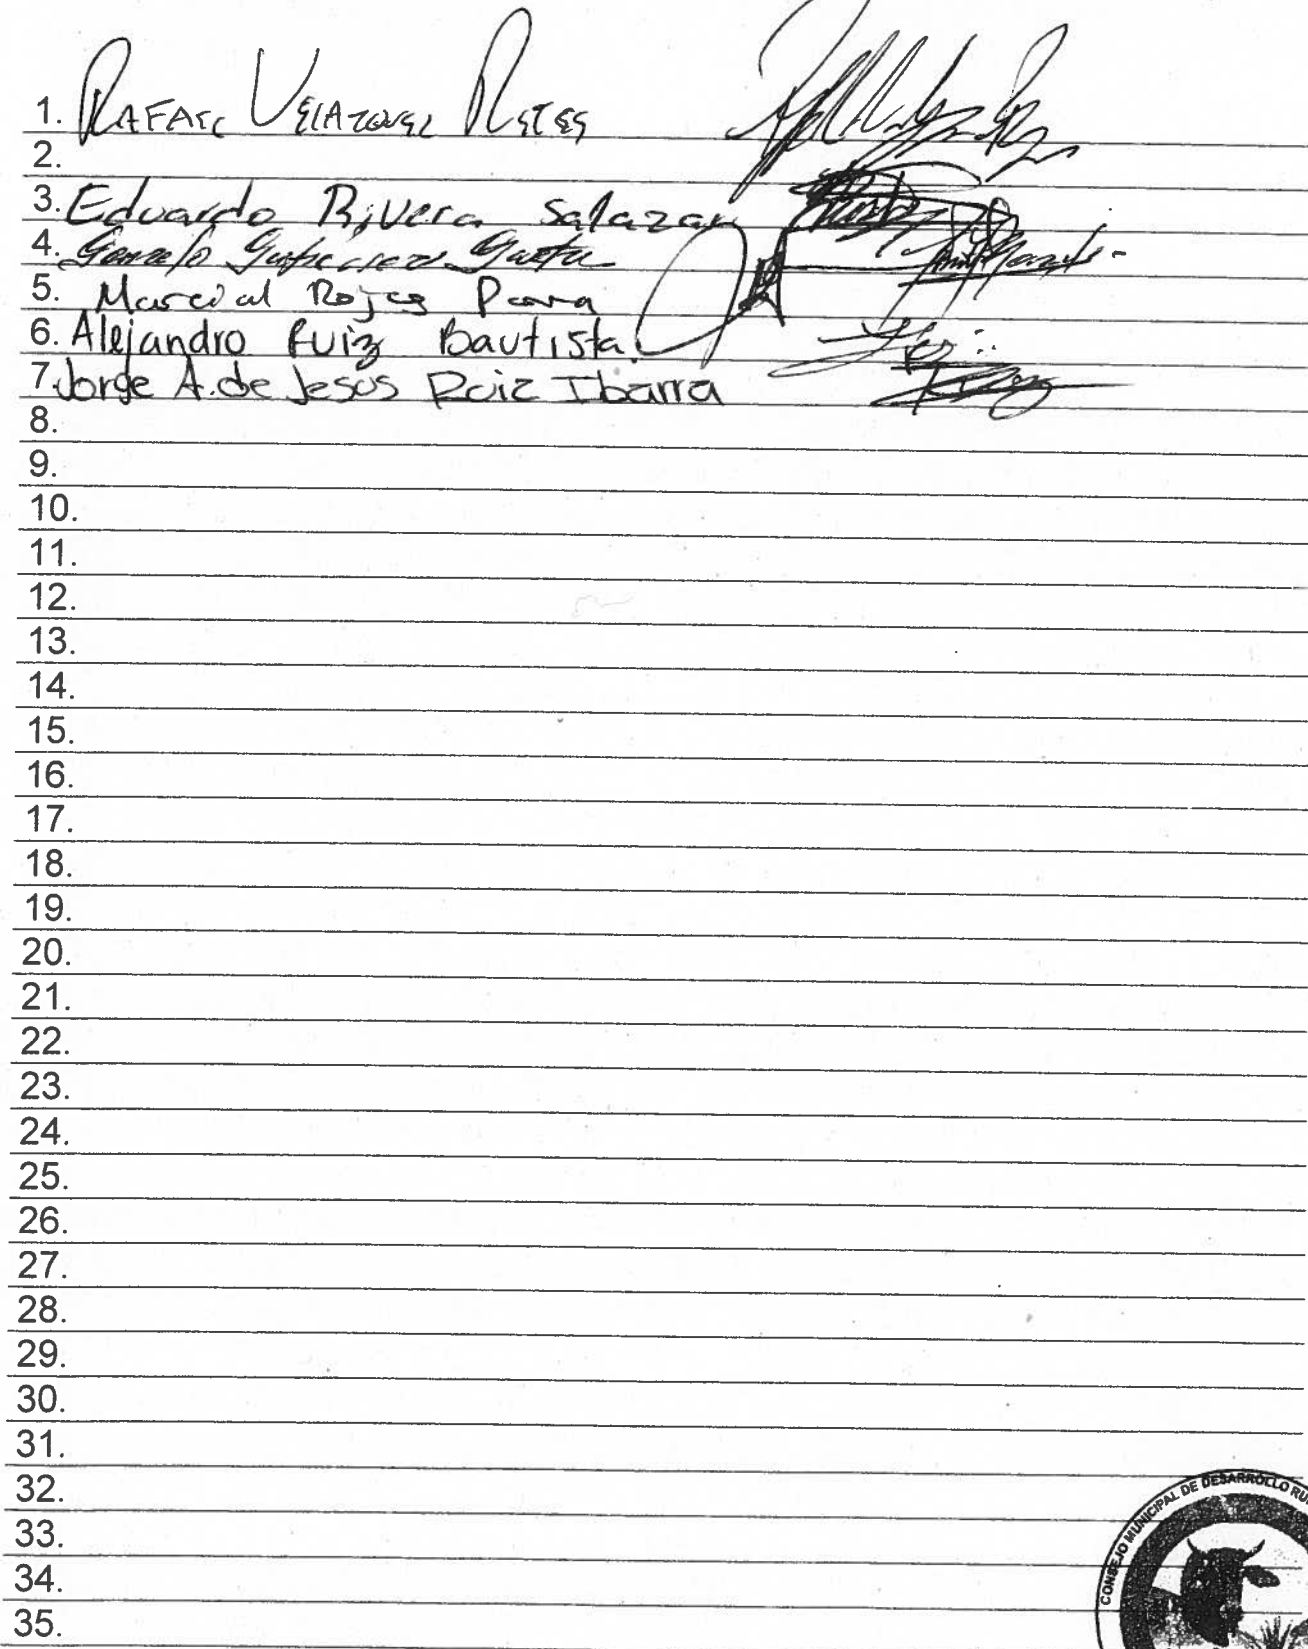 1. RAFAEL VELAZQUEZ REYES
2.
3. Eduardo Rivera Salazar
4. Gonzalo Gutierrez
5. Marcial Rojas Parra
6. Alejandro Ruiz Bautista.
7. Jorge A. de Jesus Ruiz Ibarra
8.
9.
10.
11.
12.
13.
14.
15.
16.
17.
18.
19.
20.
21.
22.
23.
24.
25.
26.
27.
28.
29.
30.
31.
32.
33.
34.
35.
CONSEJO MUNICIPAL DE DESARROLLO RU